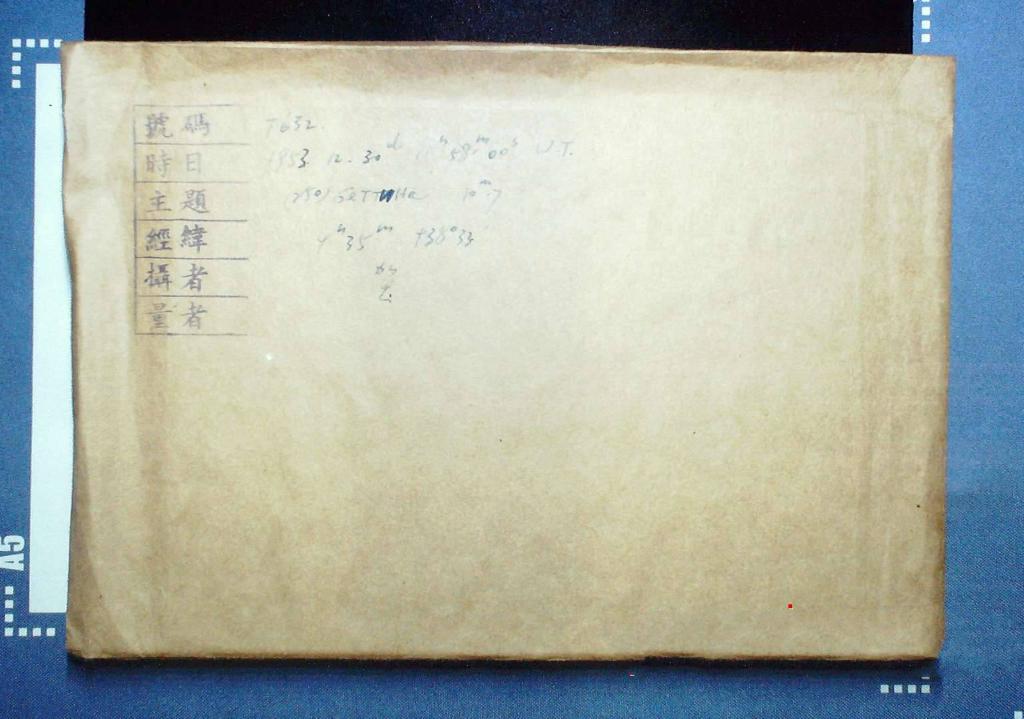 號碼 T632.
時日 1953. 12. 30ᵈ 11ʰ 58ᵐ 00ˢ U.T.
主題 (250) Беттина 10ᵐ.7
經緯 4ʰ 35ᵐ +38°33'
攝者
量者
A5